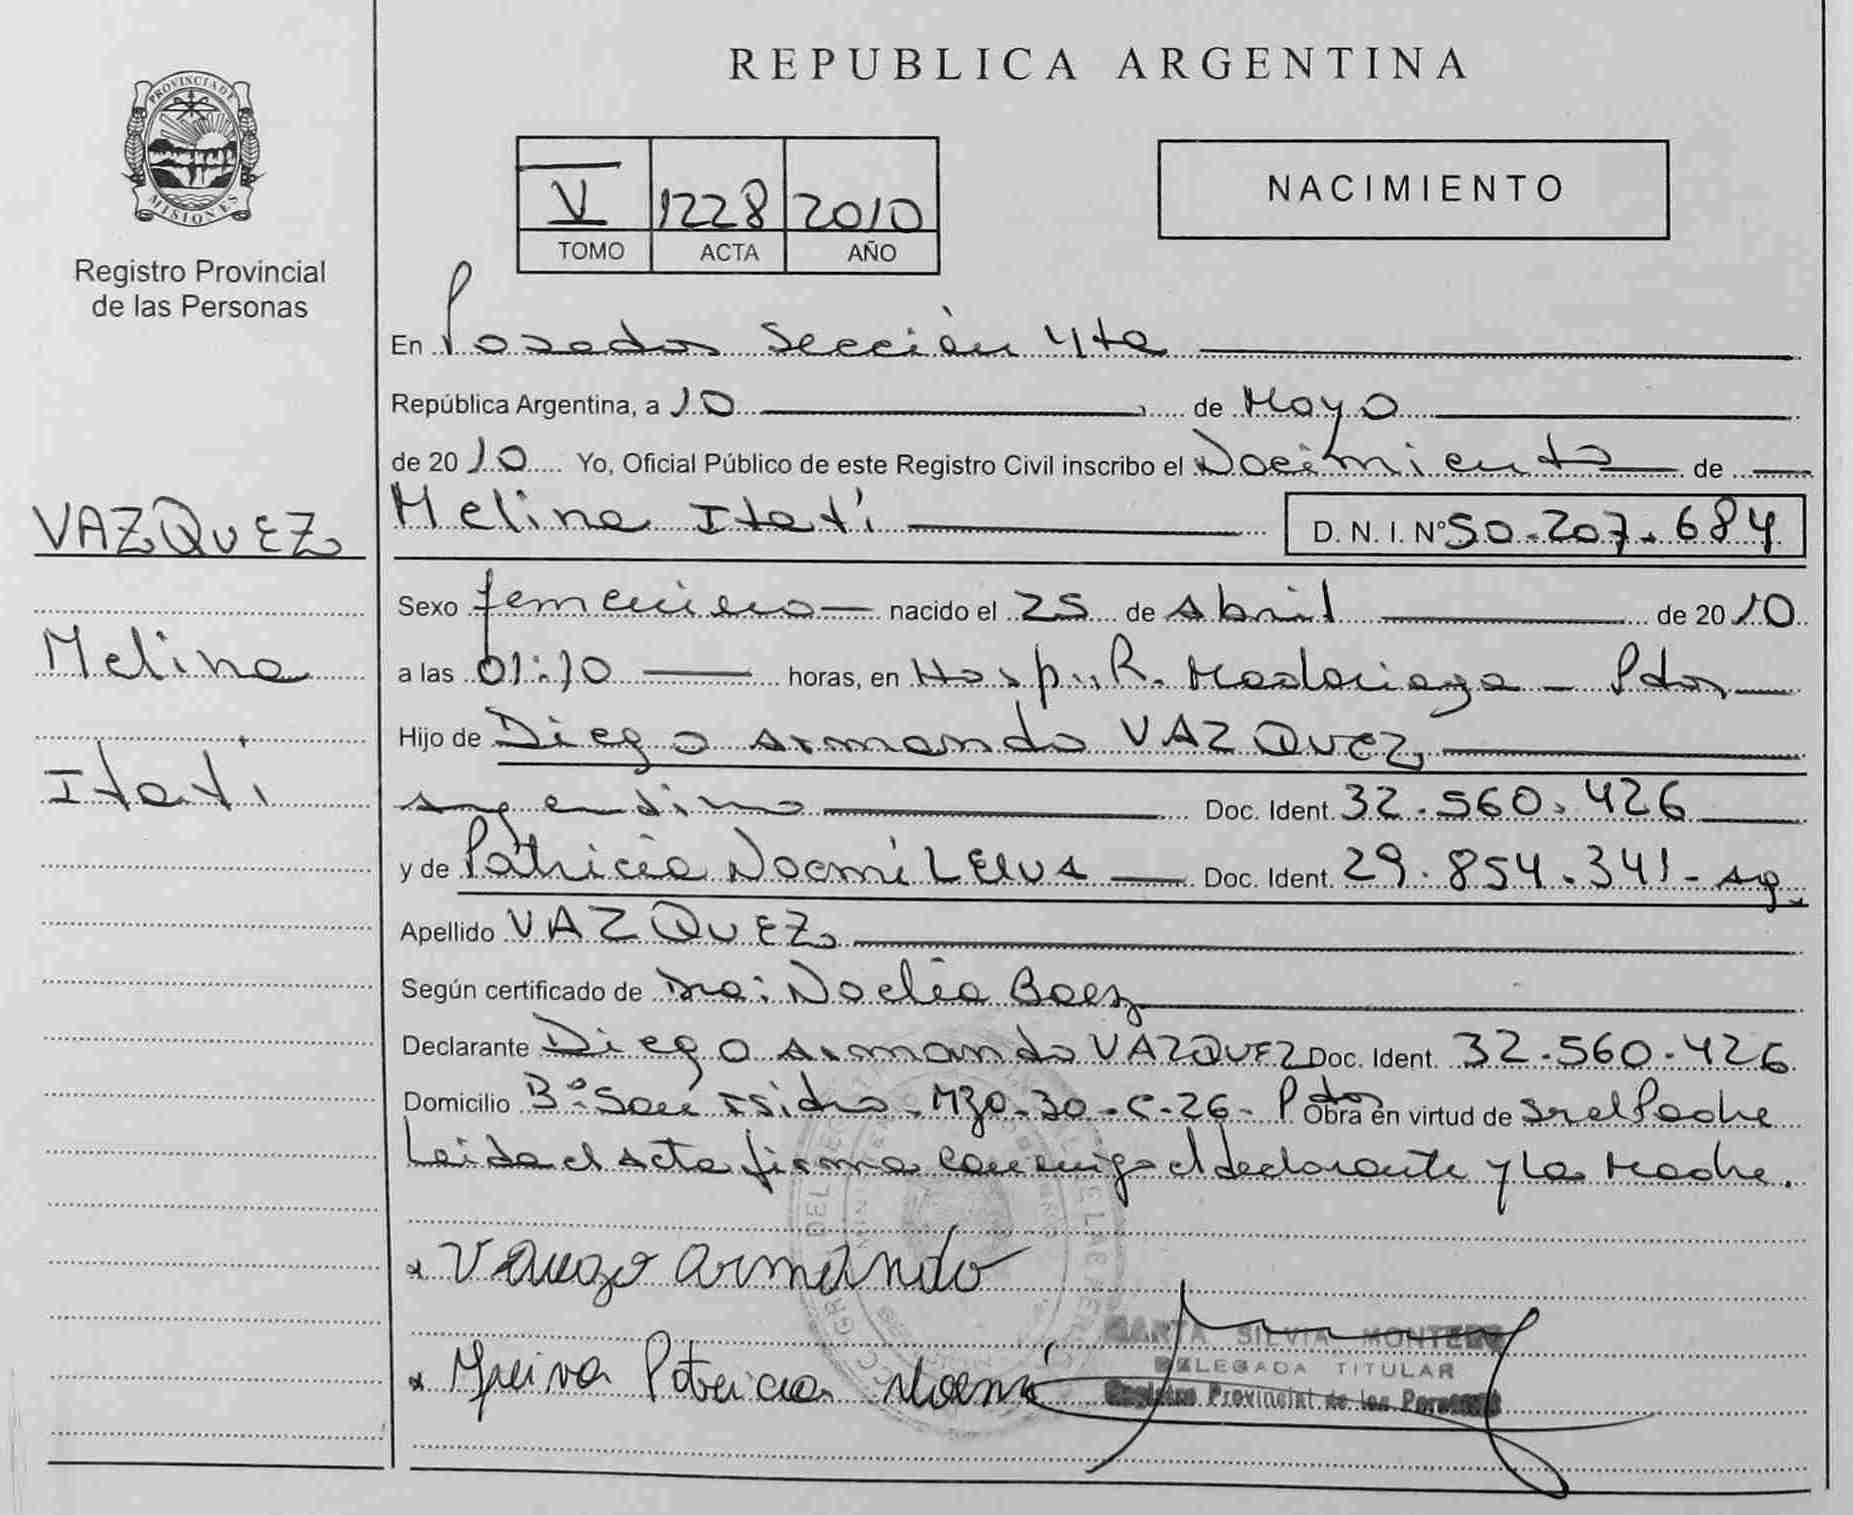 PROVINCIA DE
MISIONES
Registro Provincial
de las Personas
VAZQUEZ
Melina
Itatí
REPUBLICA ARGENTINA
V 1228 2010
TOMO ACTA AÑO
NACIMIENTO
En Posadas Sección 4ta
República Argentina, a 10 de Mayo
de 2010 Yo, Oficial Público de este Registro Civil inscribo el Nacimiento de
Melina Itatí D. N. I. Nº 50.207.684
Sexo femenino nacido el 25 de Abril de 2010
a las 01:10 horas, en Hosp. R. Madariaga - Pdas
Hijo de Diego Armando VAZQUEZ
Argentino Doc. Ident. 32.560.426
y de Patricia Noemí Doc. Ident. 29.854.341 - Arg.
Apellido VAZQUEZ
Según certificado de Dra: Noelia Baez
Declarante Diego Armando VAZQUEZ Doc. Ident. 32.560.426
Domicilio Bº San Isidro - Mza - 30 - C - 26 - Pdas Obra en virtud de ser el Padre
Leida el Acta firma conmigo el declarante y la Madre.
Armando
Patricia Noemí
MARTA SILVIA MONTERO
DELEGADA TITULAR
Registro Provincial de las Personas